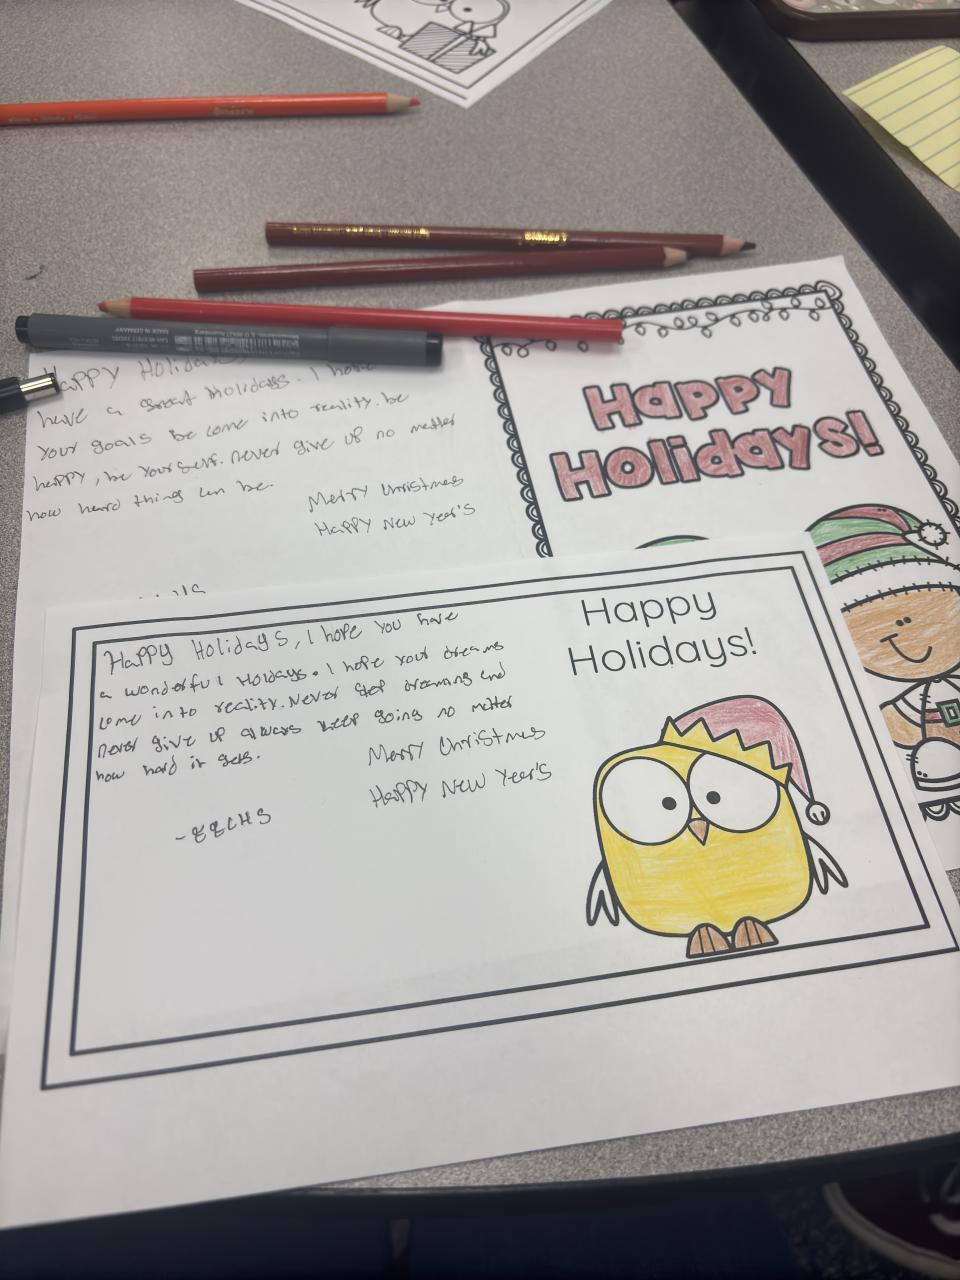 MADE IN GERMANY
Happy Holidays
have a great Holidays. I hope
your goals be come into reality. be
happy, be yourself. never give up no matter
how hard things can be.
Merry Christmas
Happy New Year's
Happy
Holidays!
Happy Holidays, I hope you have
a wonderful Holidays. I hope your dreams
come into reality. Never stop dreaming and
never give up always keep going no matter
how hard it gets.
Merry Christmas
Happy New Year's
Happy
Holidays!